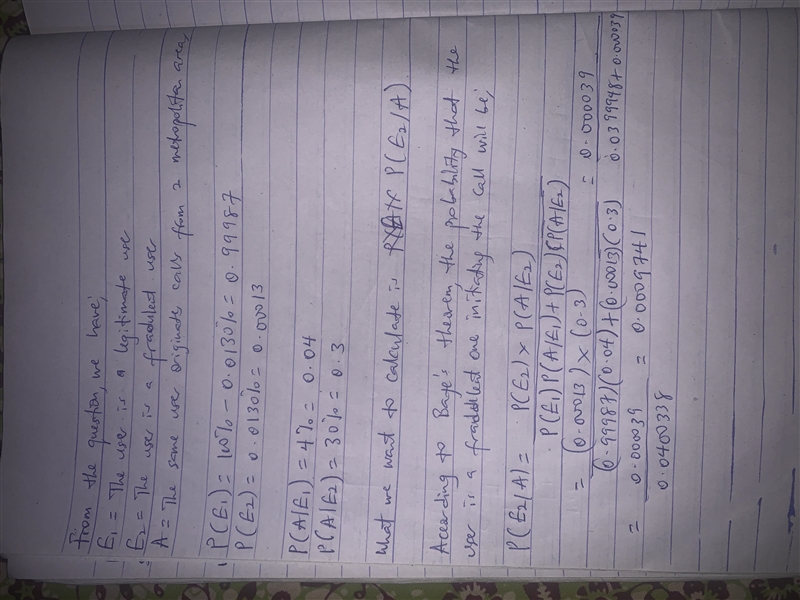 From the question, we have;
E₁ = The user is a legitimate user
E₂ = The user is a fradulent user
A = The same user originates calls from 2 metropolitan area,
P(E₁) = 100% - 0.013% = 0.99987
P(E₂) = 0.013% = 0.00013
P(A/E₁) = 4% = 0.04
P(A/E₂) = 30% = 0.3
What we want to calculate is P(E₂/A)
According to Baye's theorem, the probability that the
user is a fradulent one initiating the call will be;
P(E₂/A) = P(E₂) × P(A/E₂)
P(E₁)P(A/E₁) + P(E₂)P(A/E₂)
= (0.00013) × (0.3) = 0.000039
(0.99987)(0.04) + (0.00013)(0.3) 0.0399948 + 0.000039
= 0.000039 = 0.0009741
0.0400338